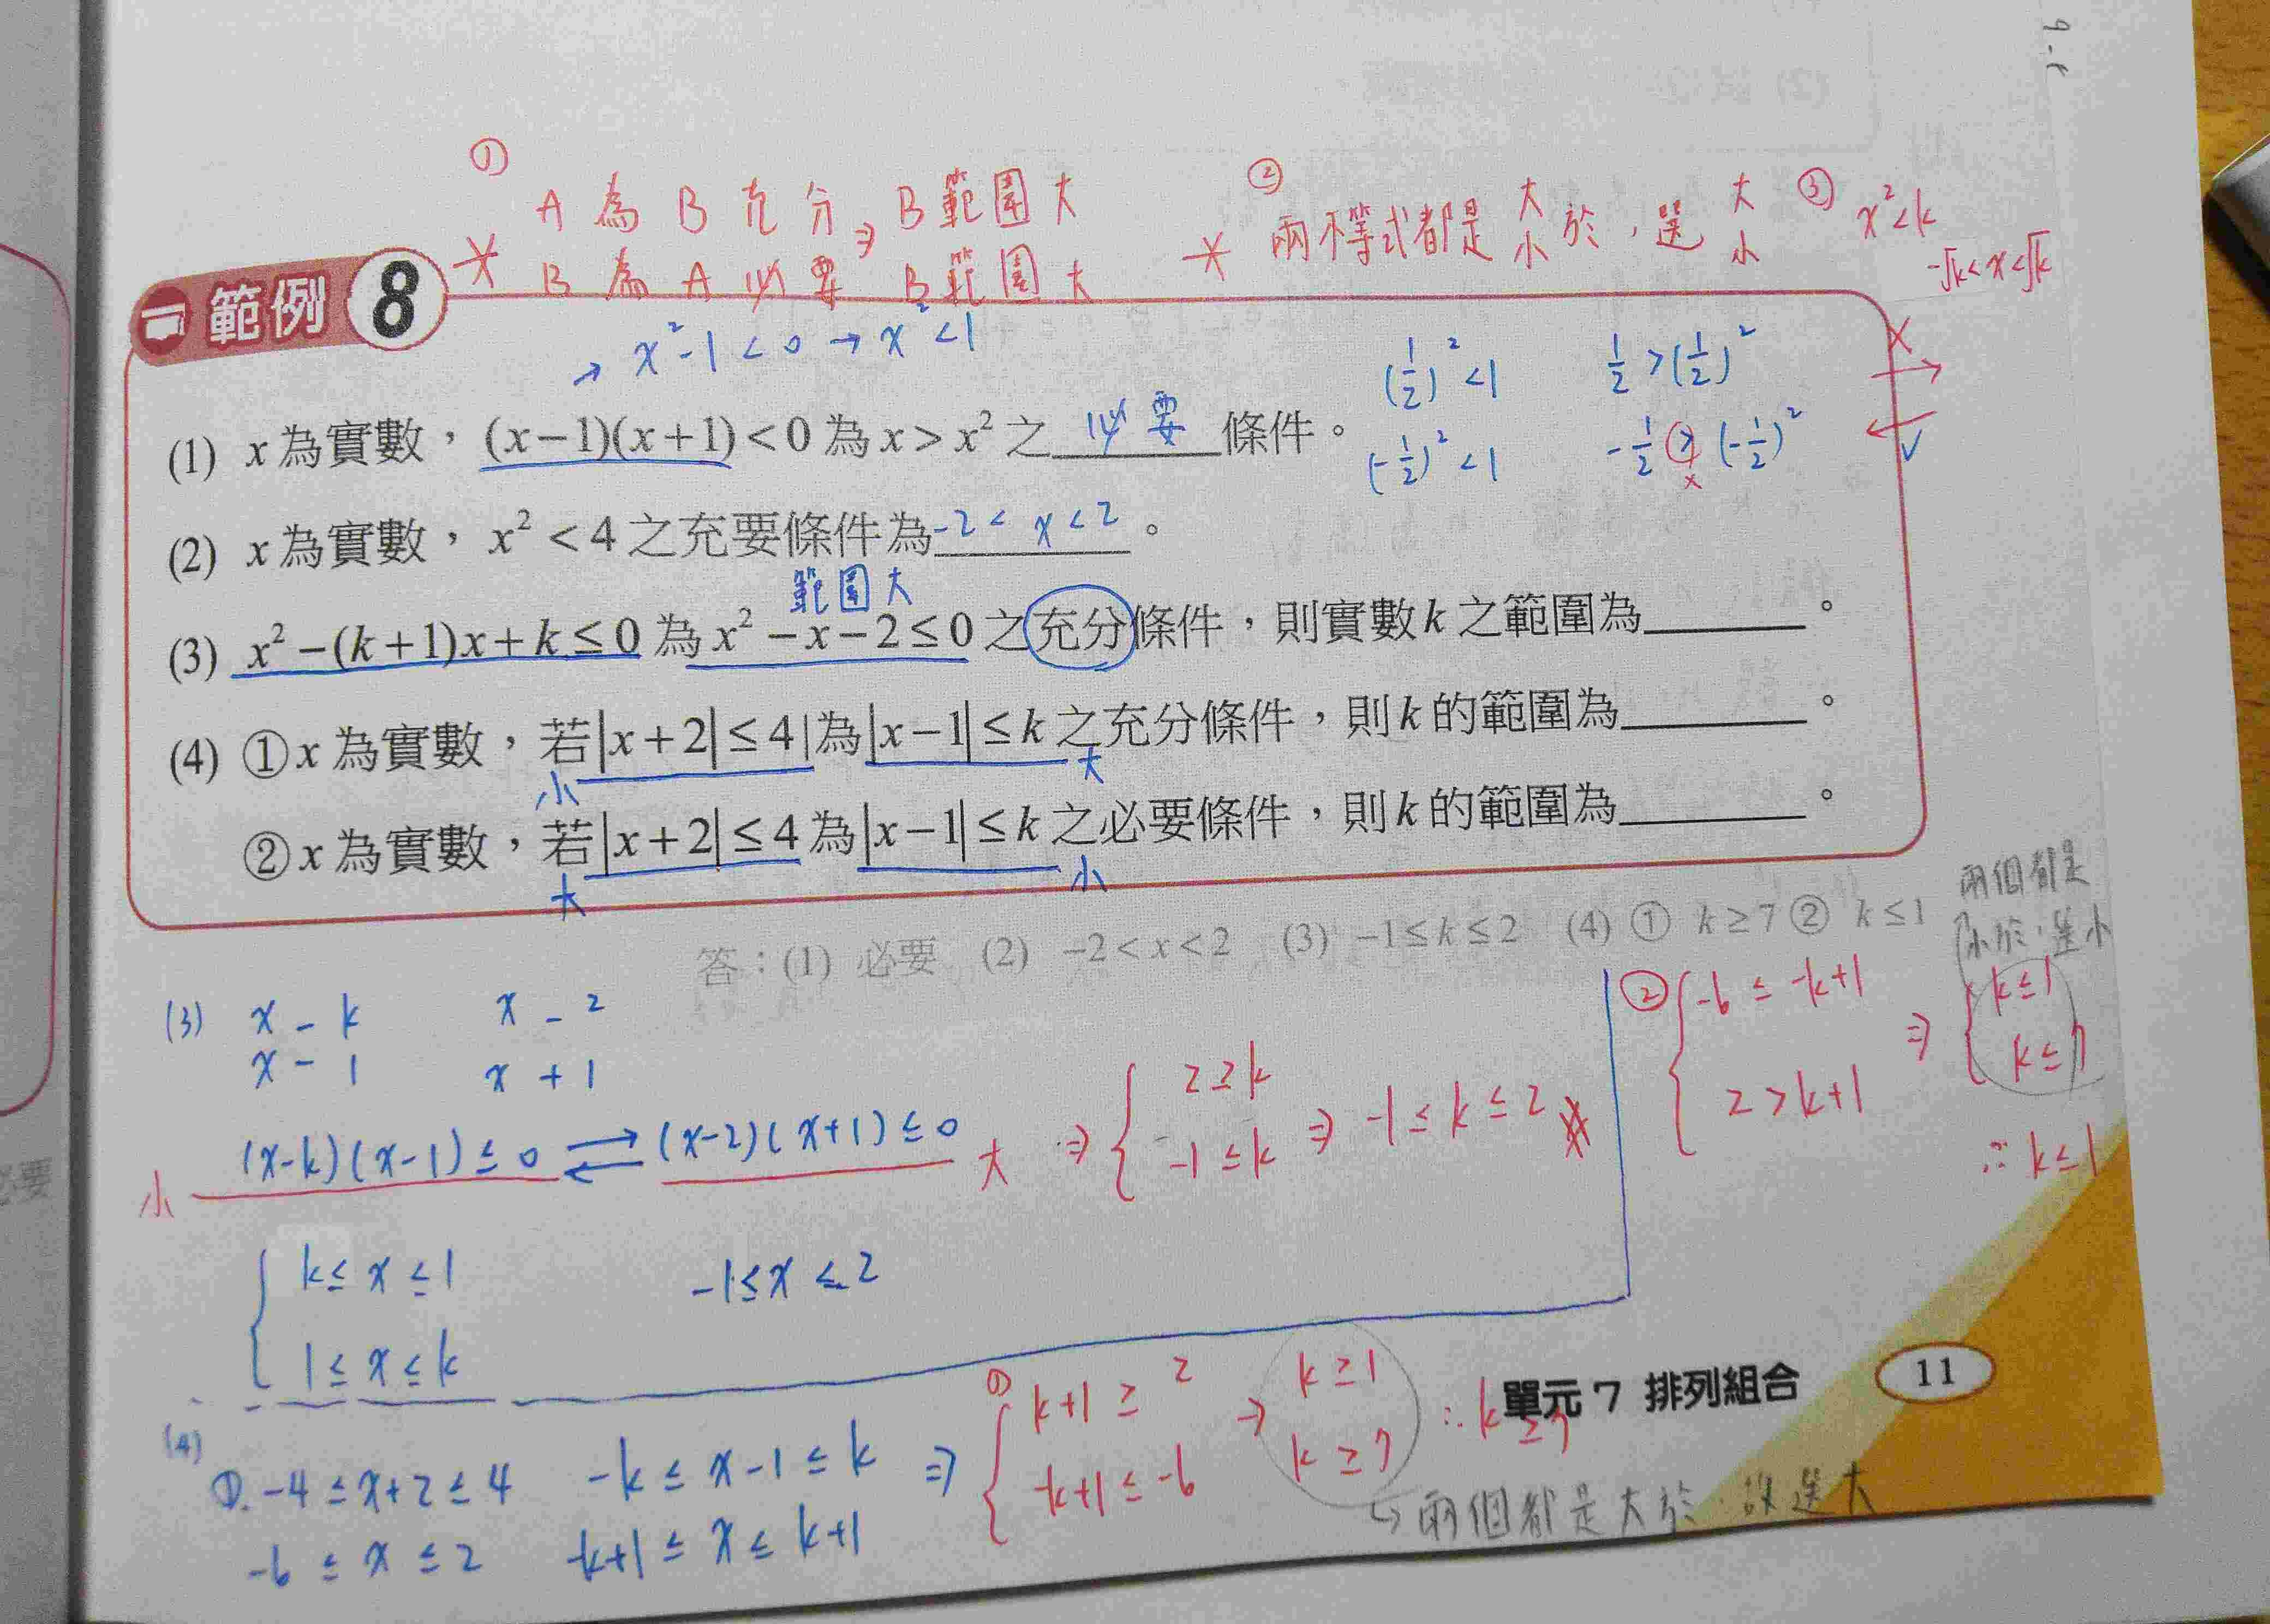 9-1
① A 為 B 充分 ⇒ B 範圍大
* B 為 A 必要 B 範圍大
② * 兩不等式都是大小於，選大小
③ x²<k
-√k<x<√k
範例 8
→ x²-1<0 → x²<1
(1/2)²<1 1/2>(1/2)²
(-1/2)²<1 -1/2>(-1/2)² x
X →
← V
(1) x為實數，(x-1)(x+1)<0為x>x²之 必要 條件。
(2) x為實數，x²<4之充要條件為 -2<x<2 。
範圍大
(3) x²-(k+1)x+k≤0為x²-x-2≤0之充分條件，則實數k之範圍為______。
(4) ①x為實數，若|x+2|≤4|為|x-1|≤k之充分條件，則k的範圍為______。
小 大
②x為實數，若|x+2|≤4為|x-1|≤k之必要條件，則k的範圍為______。
大 小
答：(1) 必要 (2) -2<x<2 (3) -1≤k≤2 (4) ① k≥7 ② k≤1
兩個都是
小於，選小
(3) x - k x - 2
x - 1 x + 1
小 (x-k)(x-1)≤0 ⇄ (x-2)(x+1)≤0 大
⇒ { 2≥k
-1≤k ⇒ -1≤k≤2
{ k≤x≤1 -1≤x≤2
1≤x≤k
② { -6≤-k+1
2>k+1
⇒ { k≤1
k≤7
∴ k≤1
(4)
①. -4≤x+2≤4 -k≤x-1≤k
-6≤x≤2 -k+1≤x≤k+1
⇒ ① { k+1≥2
-k+1≤-6
→ k≥1
k≥7
∴ k≥7
↳ 兩個都是大於，故選大
單元 7 排列組合 11
必要